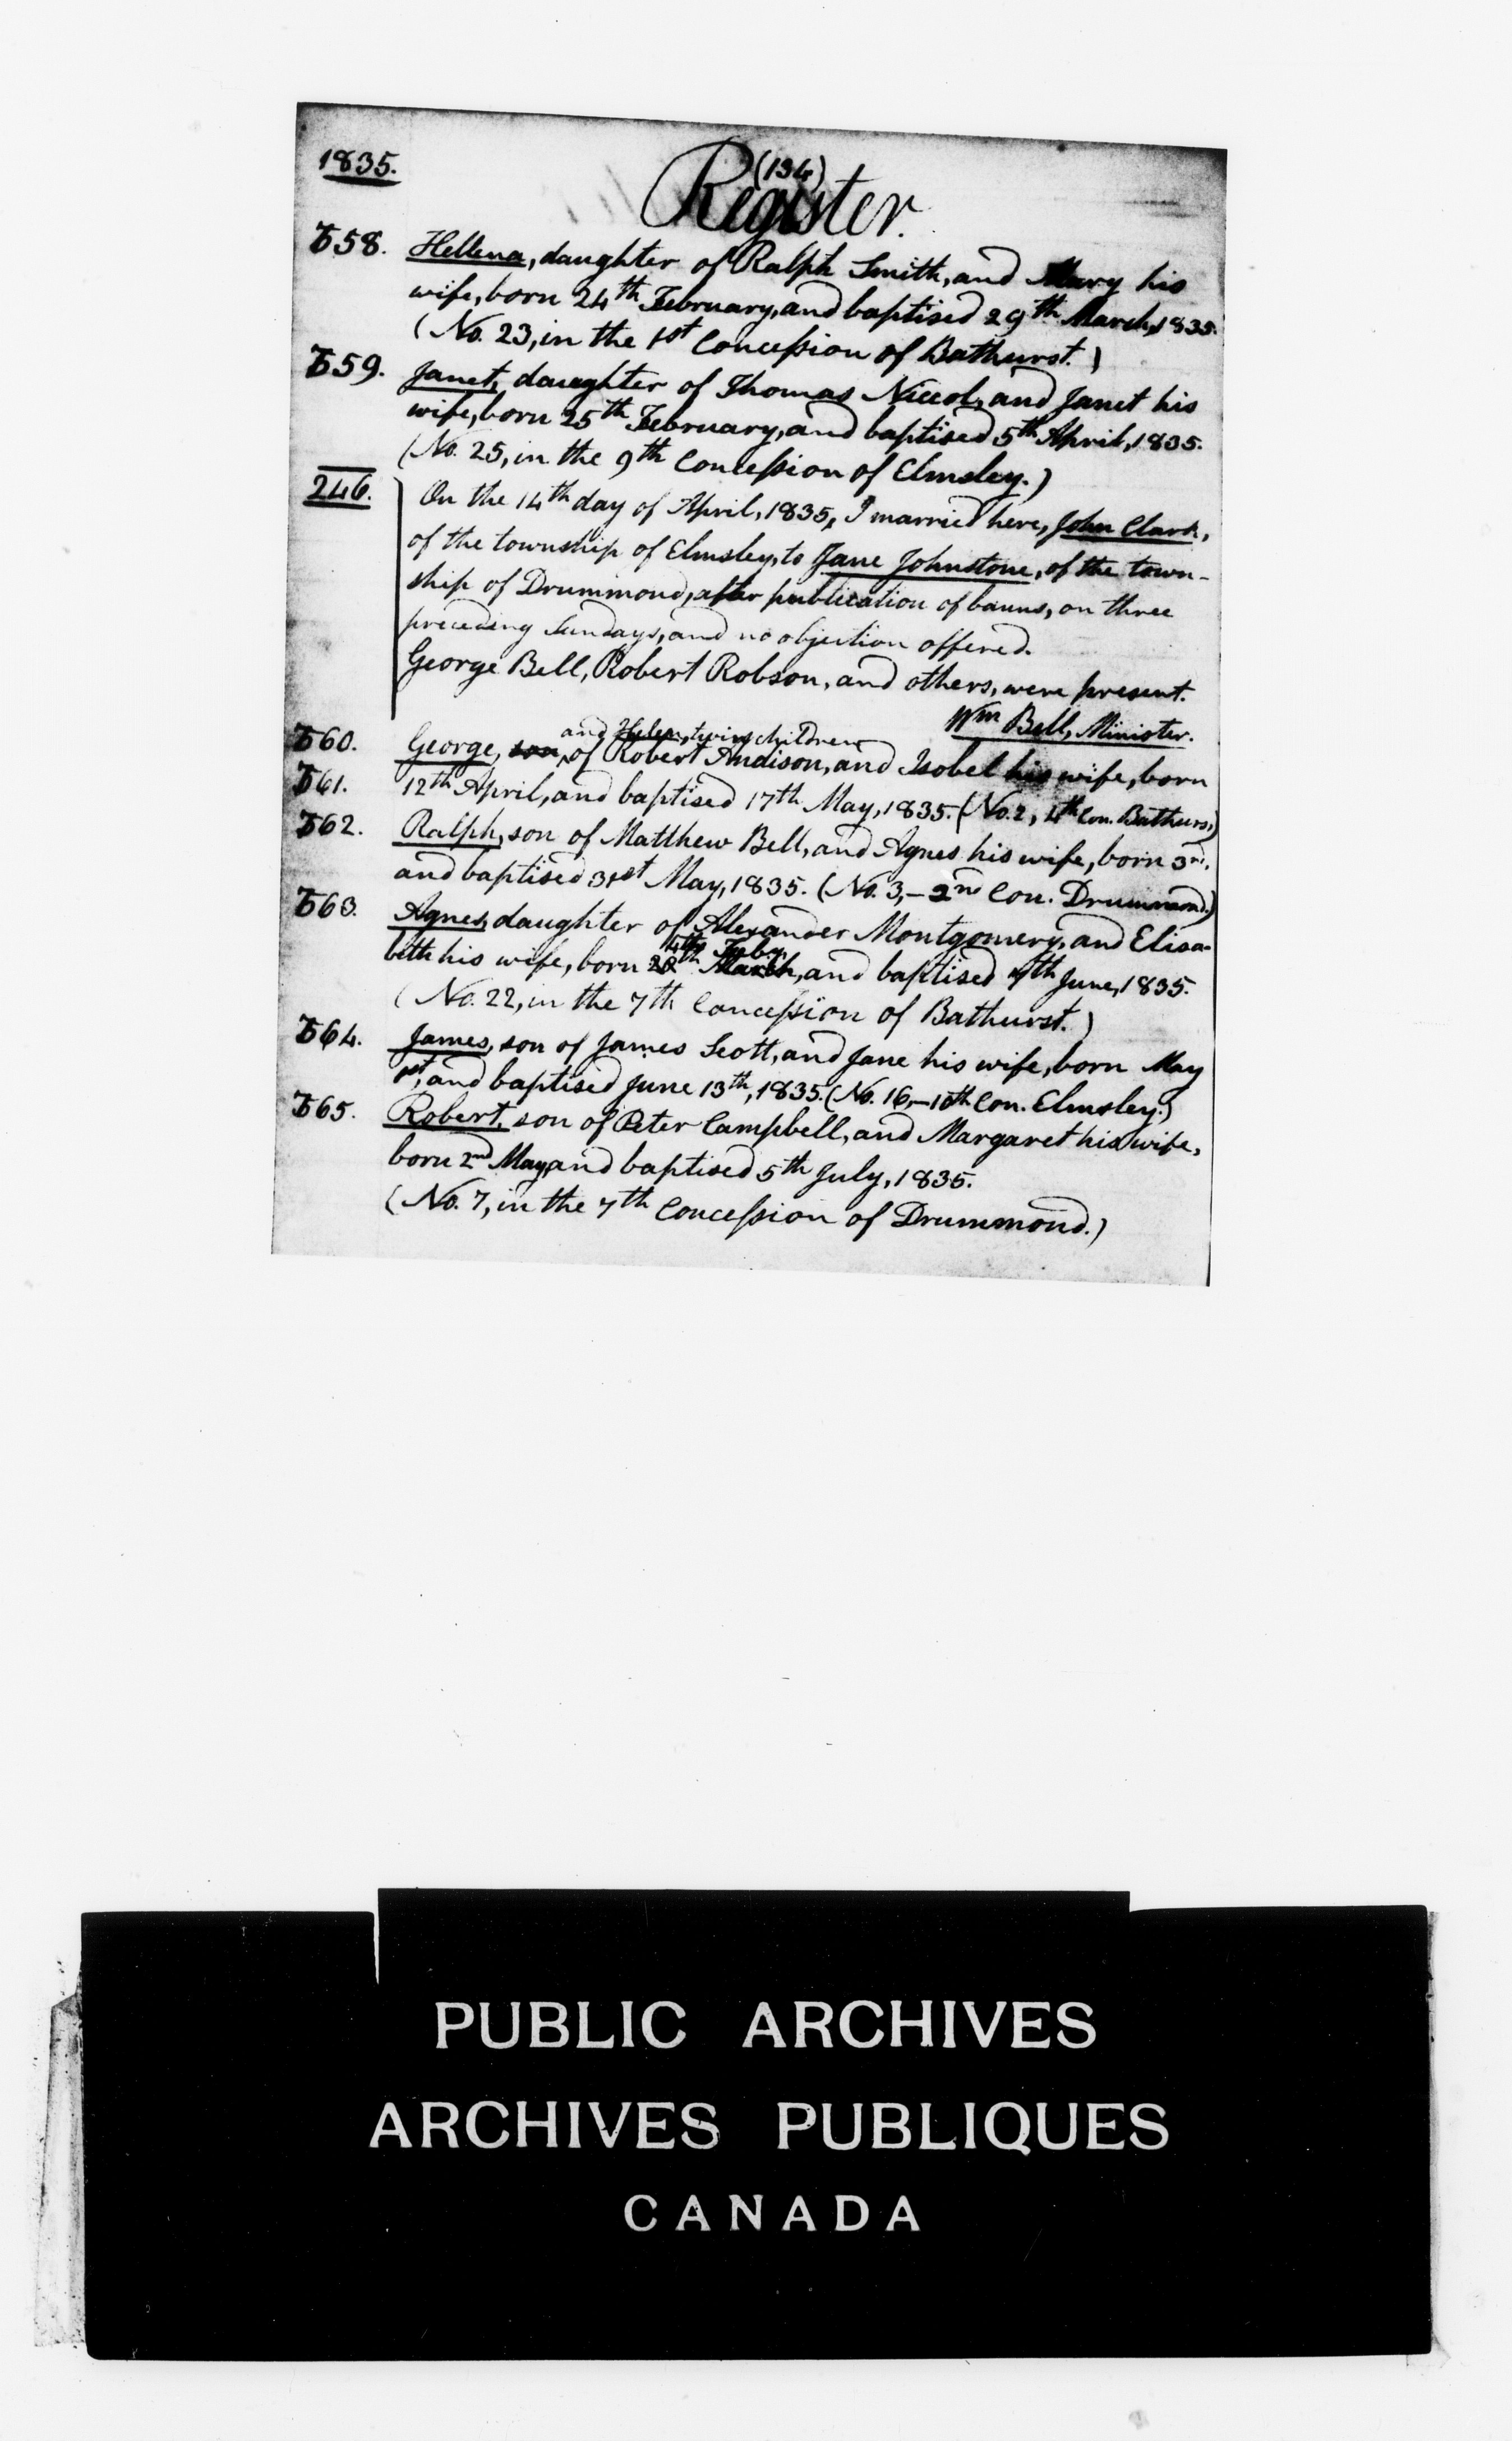 1835.
(134)
Register.
758. Hellena, daughter of Ralph Smith, and Mary his
wife, born 24th February, and baptised 29th March, 1835.
(No. 23, in the 1st Concession of Bathurst.)
759. Janet, daughter of Thomas Niccol, and Janet his
wife, born 25th February, and baptised 5th April, 1835.
(No. 25, in the 9th Concession of Elmsley.)
246. On the 14th day of April, 1835, I married here, John Clark,
of the township of Elmsley, to Jane Johnstone, of the town-
ship of Drummond, after publication of banns, on three
preceding Sundays, and no objection offered.
George Bell, Robert Robson, and others, were present.
Wm Bell, Minister.
and Helen, twin children
760. George, son, of Robert Andison, and Isobel his wife, born
761. 12th April, and baptised 17th May, 1835. (No. 2, 4th Con. Bathurst)
762. Ralph, son of Matthew Bell, and Agnes his wife, born 3rd,
and baptised 31st May, 1835. (No. 3,—2nd Con. Drummond.)
763. Agnes, daughter of Alexander Montgomery, and Elisa-
4th Feby.
beth his wife, born 28th March, and baptised 7th June, 1835.
(No. 22, in the 7th Concession of Bathurst.)
764. James, son of James Scott, and Jane his wife, born May
1st, and baptised June 13th, 1835. (No. 16,—10th Con. Elmsley.)
765. Robert, son of Peter Campbell, and Margaret his wife,
born 2nd May, and baptised 5th July, 1835.
(No. 7, in the 7th Concession of Drummond.)
PUBLIC ARCHIVES
ARCHIVES PUBLIQUES
CANADA